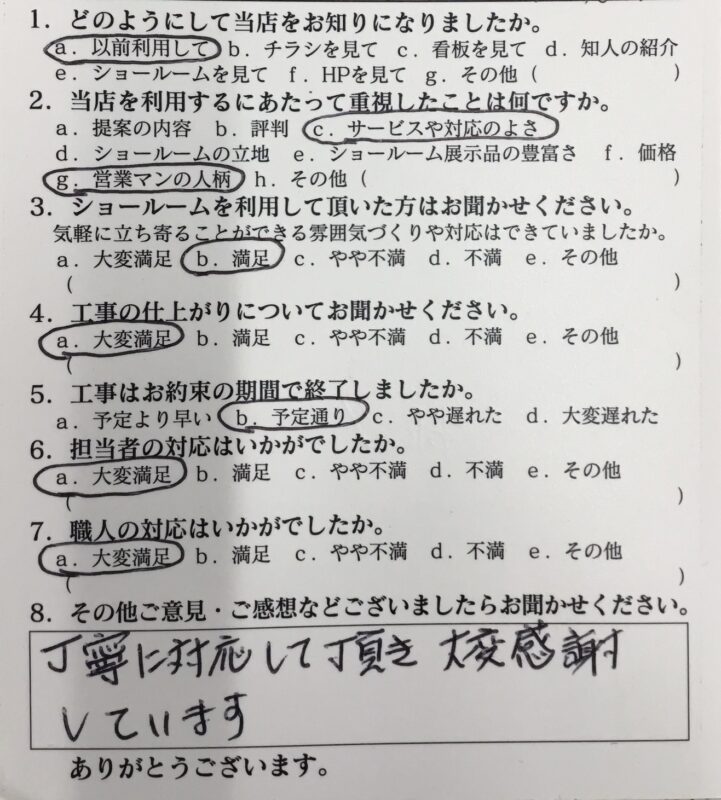 1．どのようにして当店をお知りになりましたか。
a．以前利用して b．チラシを見て c．看板を見て d．知人の紹介
e．ショールームを見て f．HPを見て g．その他（ ）
2．当店を利用するにあたって重視したことは何ですか。
a．提案の内容 b．評判 c．サービスや対応のよさ
d．ショールームの立地 e．ショールーム展示品の豊富さ f．価格
g．営業マンの人柄 h．その他（ ）
3．ショールームを利用して頂いた方はお聞かせください。
気軽に立ち寄ることができる雰囲気づくりや対応はできていましたか。
a．大変満足 b．満足 c．やや不満 d．不満 e．その他
（ ）
4．工事の仕上がりについてお聞かせください。
a．大変満足 b．満足 c．やや不満 d．不満 e．その他
（ ）
5．工事はお約束の期間で終了しましたか。
a．予定より早い b．予定通り c．やや遅れた d．大変遅れた
6．担当者の対応はいかがでしたか。
a．大変満足 b．満足 c．やや不満 d．不満 e．その他
（ ）
7．職人の対応はいかがでしたか。
a．大変満足 b．満足 c．やや不満 d．不満 e．その他
（ ）
8．その他ご意見・ご感想などございましたらお聞かせください。
丁寧に対応して頂き 大変感謝
しています
ありがとうございます。